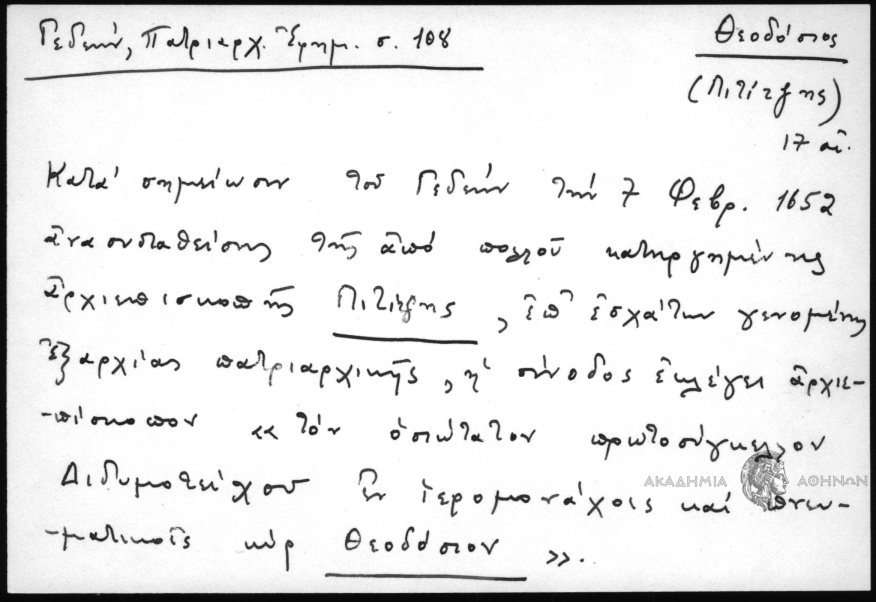 Γεδεών, Πατριαρχ. Ἐφημ. σ. 108
Θεοδόσιος
(Πιτίτζης)
17 αἰ.
Κατά σημείωσιν τοῦ Γεδεών τήν 7 Φεβρ. 1652
ἀνασυσταθείσης τῆς ἀπό πολλοῦ κατηργημένης
ἀρχιεπισκοπῆς Πιτίτζης, ἐπ' ἐσχάτων γενομένης
ἐξαρχίας πατριαρχικῆς, ἡ σύνοδος ἐκλέγει ἀρχιε-
-πίσκοπον «τόν ὁσιώτατον πρωτοσύγκελλον
Διδυμοτείχου ἐν ἱερομονάχοις καί πνευ-
-ματικοῖς κύρ Θεοδόσιον».
ΑΚΑΔΗΜΙΑ ΑΘΗΝΩΝ